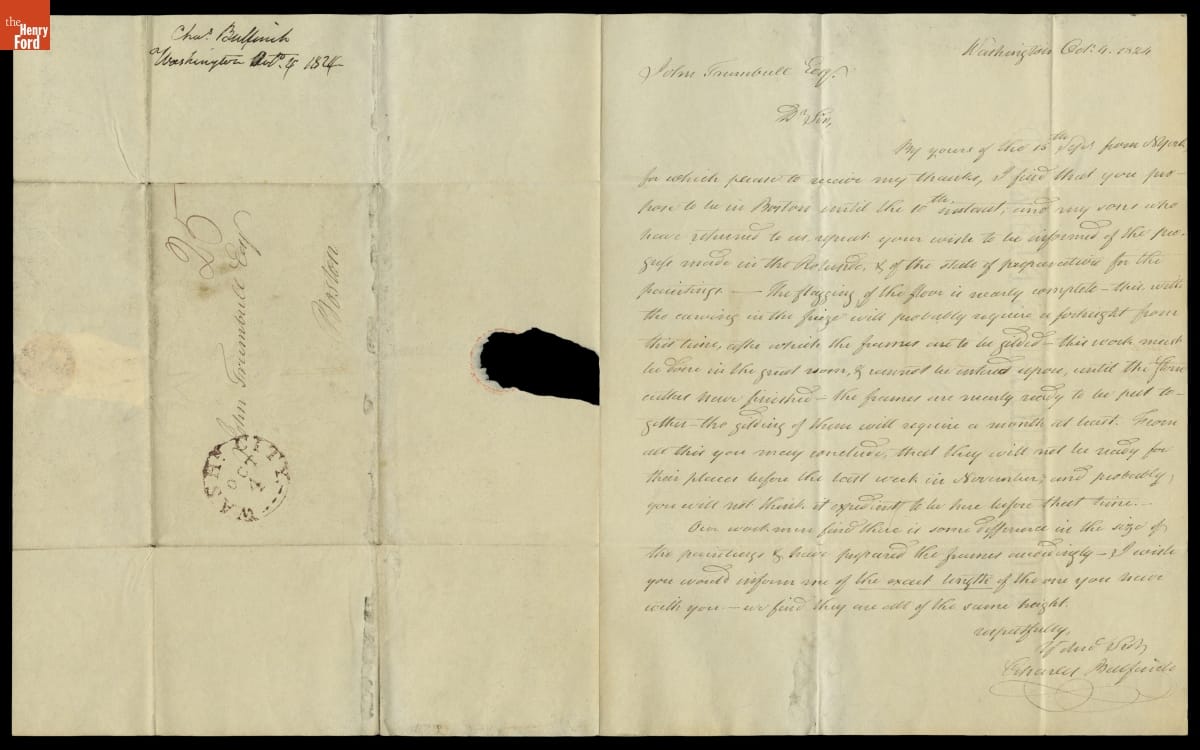 the
Henry
Ford
Chas. Bulfinch
Washington Octo. 4 1824
25
John Trumbull Esq
Boston.
WASHN CITY
OCT
4
Washington Oct. 4. 1824
John Trumbull Esq.
Dr Sir,
By yours of the 15th Sept from NYork
for which please to receive my thanks, I find that you pro-
pose to be in Boston until the 10th instant, and my sons who
have returned to us repeat your wish to be informed of the pro-
gress made in the Rotundo, & of the state of preparations for the
paintings. — The flagging of the floor is nearly complete – this with
the carving in the frieze will probably require a fortnight from
this time, after which the frames are to be gilded – this work must
be done in the great room, & cannot be entered upon, until the stone
cutters have finished – the frames are nearly ready to be put to-
gether – the gilding of them will require a month at least. From
all this you may conclude, that they will not be ready for
their places before the last week in November, and probably,
you will not think it expedient to be here before that time. –
Our workmen find there is some difference in the size of
the paintings & have prepared the frames accordingly – I wish
you would inform me of the exact length of the one you have
with you – we find they are all of the same height.
respectfully,
Charles Bulfinch